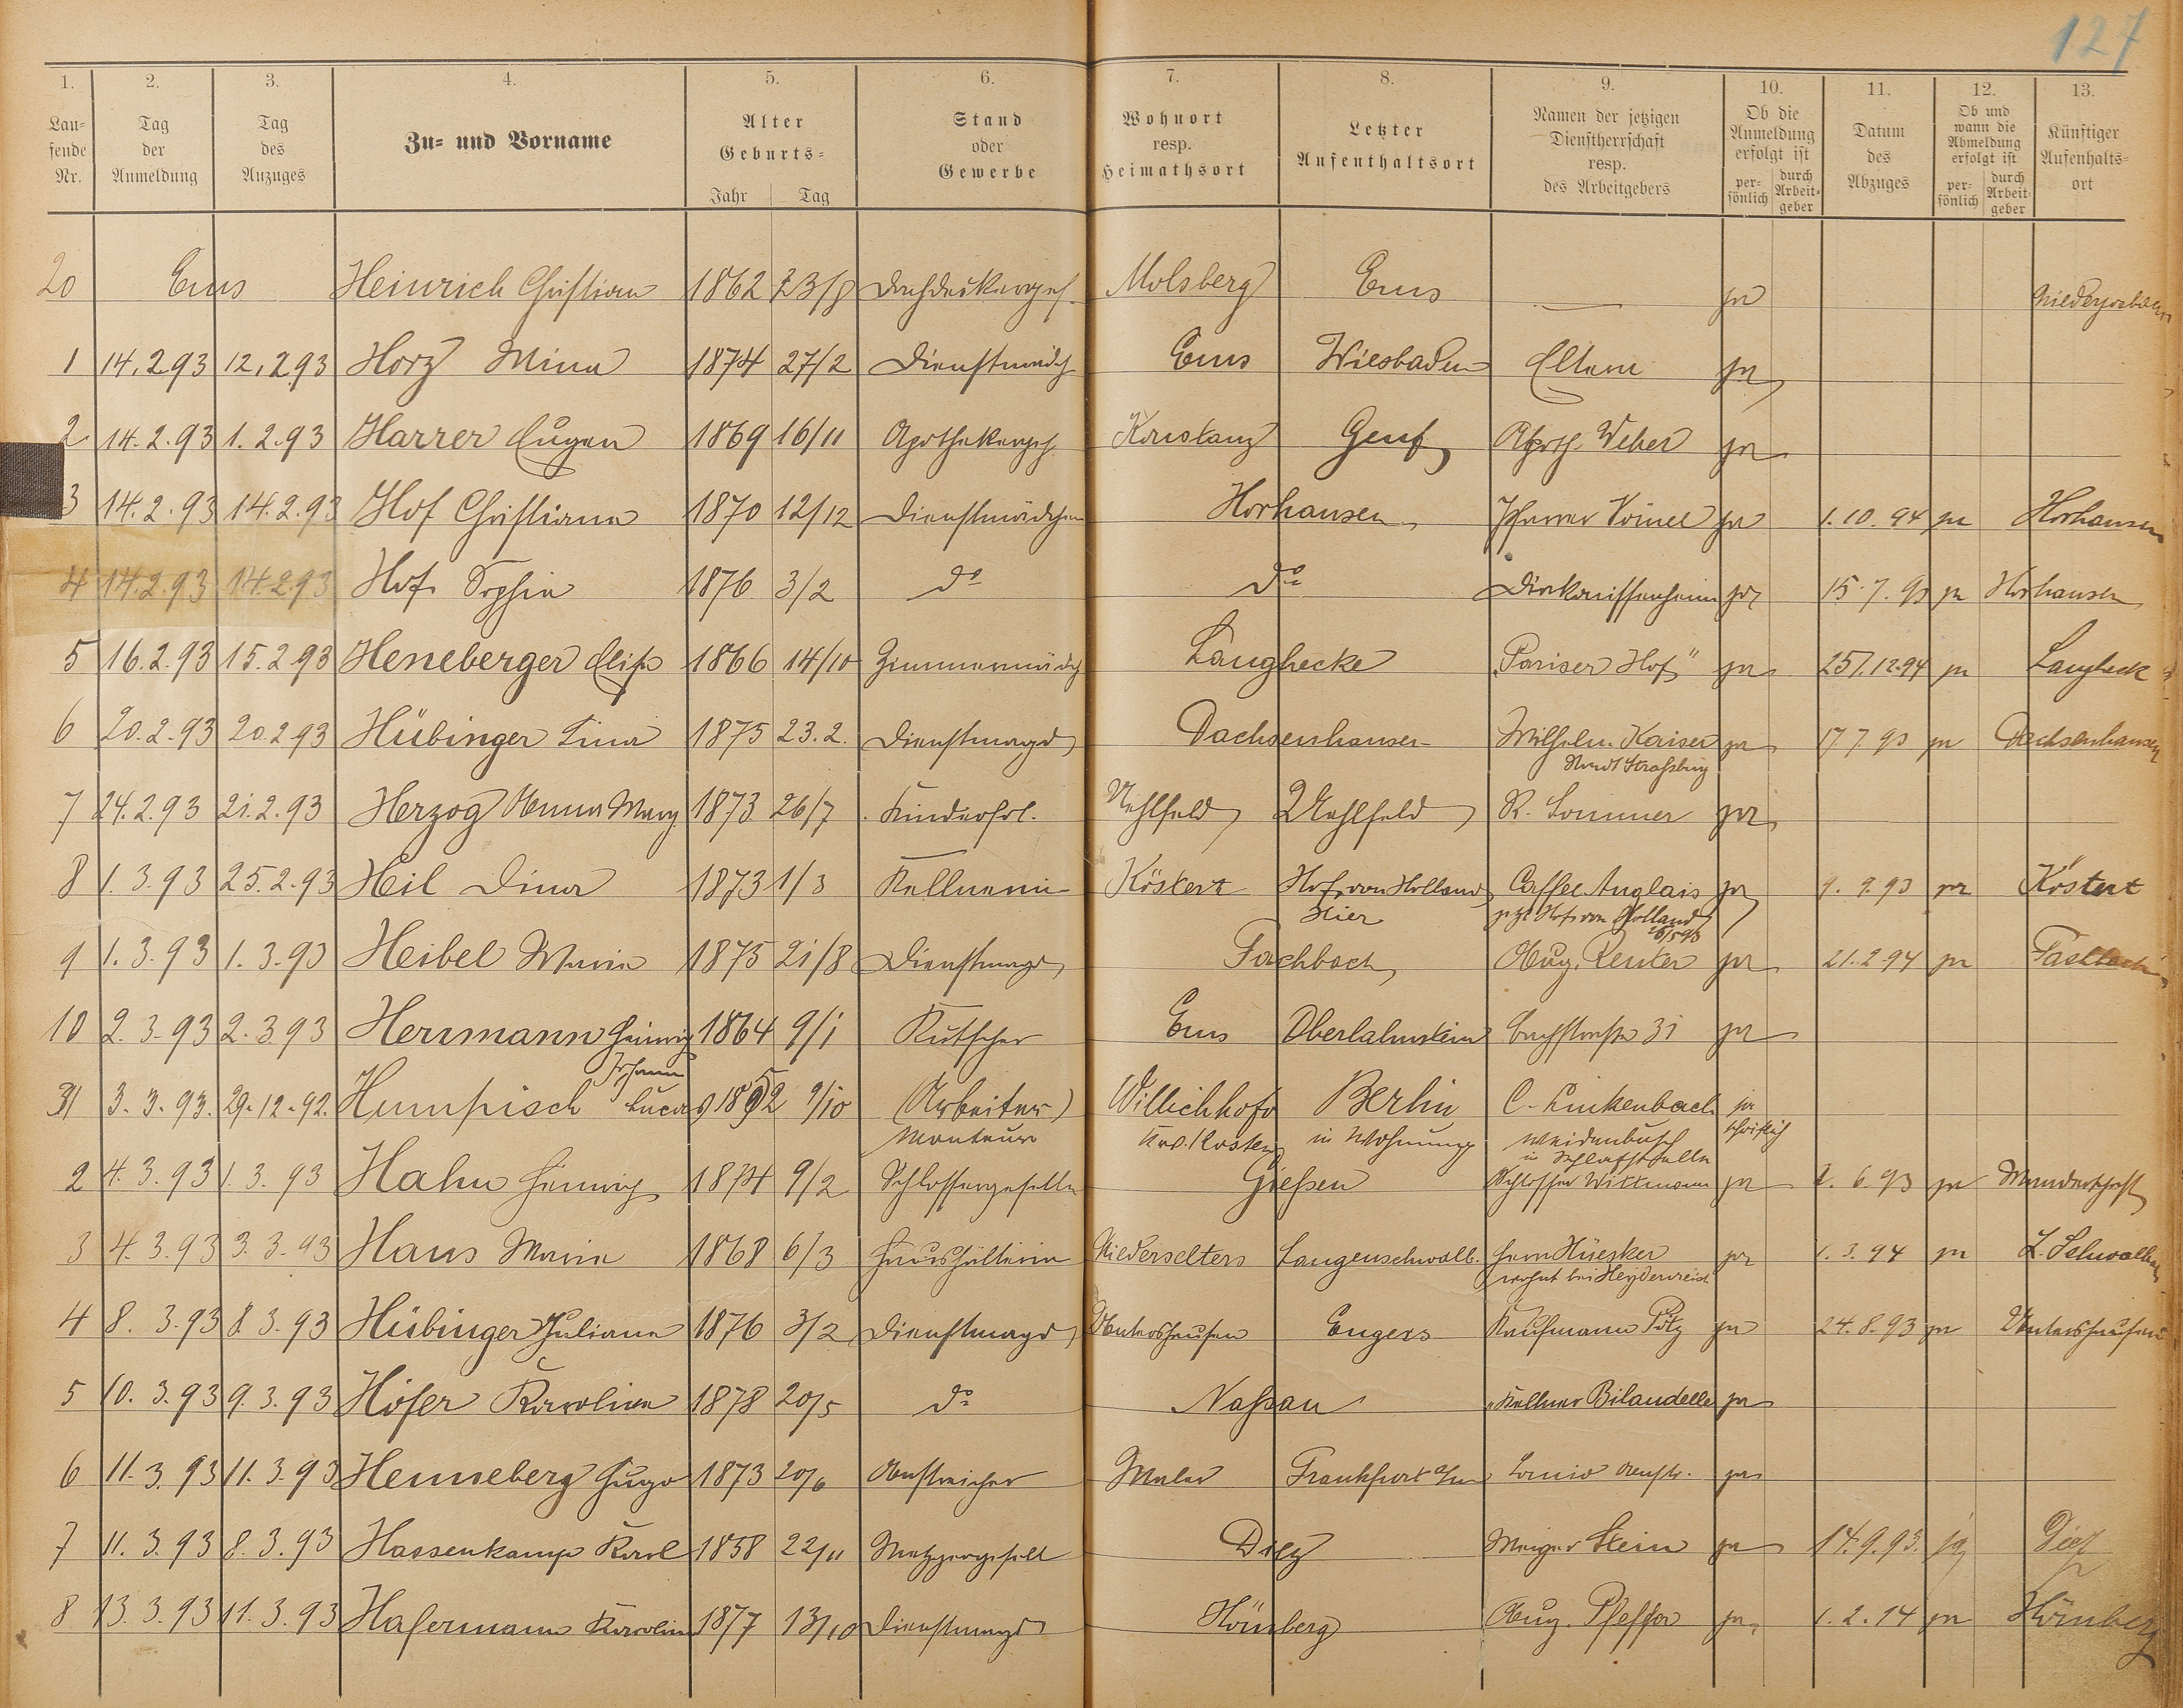 127
1. 2. 3. 4. 5. 6. 7. 8. 9. 10. 11. 12. 13.
Lau-
fende
Nr.
Tag
der
Anmeldung
Tag
des
Anzuges
Zu- und Vorname
Alter
Geburts-
Jahr Tag
Stand
oder
Gewerbe
Wohnort
resp.
Heimathsort
Letzter
Aufenthaltsort
Namen der jetzigen
Dienstherrschaft
resp.
des Arbeitgebers
Ob die
Anmeldung
erfolgt ist
per-
sönlich
durch
Arbeit-
geber
Datum
des
Abzuges
Ob und
wann die
Abmeldung
erfolgt ist
per-
sönlich
durch
Arbeit-
geber
Künftiger
Aufenhalts-
ort
20 Ems Heinrich Christian 1862 23/8 Molsberg Ems — ja
1 14.2.93 12.2.93 Horz Mina 1874 27/2 Dienstmädch Ems Wiesbaden Eltern ja
2 14.2.93 1.2.93 Harrer Eugen 1869 16/11 Konstanz Genf Apoth. Weber ja
3 14.2.93 14.2.93 Hof Christiana 1870 12/12 Dienstmädchen Horhausen Pfarrer ja 1.10.94 ja Horhausen
4 14.2.93 14.2.93 Hof Sophie 1876 3/2 do do Diakonissenheim ja 15.7.93 ja Horhausen
5 16.2.93 15.2.93 Heneberger Elise 1866 14/10 Zimmermädch Langhecke "Pariser Hof" ja 25/.12.94 ja Langheck
6 20.2.93 20.2.93 Hübinger Lina 1875 23.2. Dienstmagd Dachsenhausen Wilhelm Kaiser ja 17.7.93 ja Dachsenhausen
Stadt Straßburg
7 24.2.93 21.2.93 Herzog Anna Marg. 1873 26/7 Kinderfrl. Uehlfeld Uehlfeld R. Sommer ja
8 1.3.93 25.2.93 Heil Dina 1873 1/3 Kellnerin Köstert Hof von Holland Caffee Anglais ja 9.9.93 ja Köstert
Hier jetzt Hof von Holland
9 1.3.93 1.3.93 Heibel Maria 1875 21/8 Dienstmagd Fachbach Aug. Reuter ja 21.2.94 ja Fachbach
10 2.3.93 2.3.93 Herrmann Heinrich 1864 9/1 Kutscher Ems Oberlahnstein Bachstraße 31 ja
Johann
31 3.3.93. 29.12.92. Humpisch Lucas 1852 9/10 (Arbeiter) Willichhofo Berlin C. Linkenbach ja
Monteur Krs. Kosten in Wohnung Weidenbusch schriftlich
in Schlafstelle
2 4.3.93 1.3.93 Hahn Heinrich 1874 9/2 Schlossergeselle Gießen Schlosser Wittmann ja 2.6.93 ja Wanderschaft
3 4.3.93 3.3.93 Haus Maria 1868 6/3 Haushälterin Niederselters Langenschwalb. Herrn Hüesker ja 1.3.94 ja L. Schwalbach
wohnt bei Heydenreich
4 8.3.93 8.3.93 Hübinger Juliane 1876 3/2 Dienstmagd Untershausen Engers Kaufmann Pötz ja 24.8.93 ja Untershausen
5 10.3.93 9.3.93 Höfer Karoline 1878 20/5 do Naßau Kellner Bilaudelle ja
6 11.3.93 11.3.93 Henneberg Hugo 1873 20/6 Anstreicher Frankfurt a/m ja
7 11.3.93 8.3.93 Hassenkamp Karl 1858 22/11 Metzgergesell Diez Metzger Stein ja 14.9.93. ja Diez
8 13.3.93 11.3.93 Hafermann Karolin 1877 13/10 Dienstmagd Hömberg Aug. Pfeffer ja 1.2.94 ja Hömberg